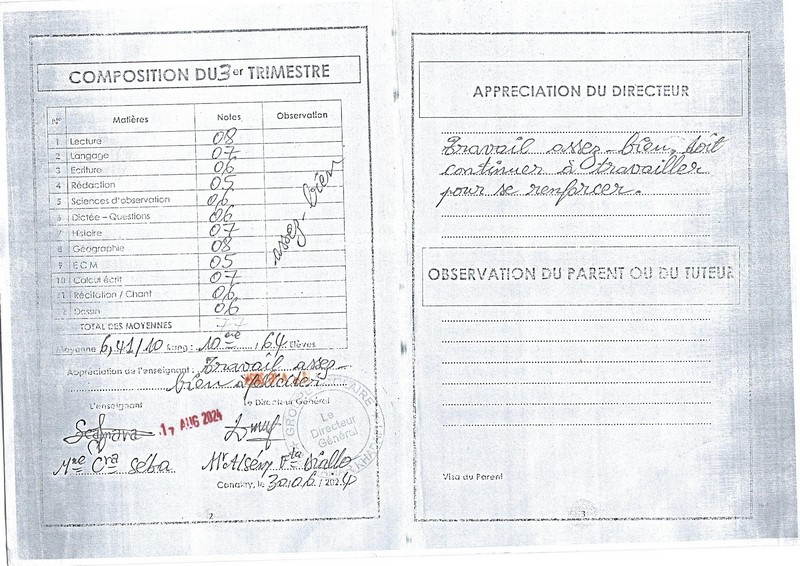 COMPOSITION DU 3er TRIMESTRE
N° Matières Notes Observation
1 Lecture 08
2 Langage 07
3 Ecriture 06
4 Rédaction 05
5 Sciences d'observation 06
6 Dictée – Questions 06
7 Histoire 07
8 Géographie 08
9 E C M 05
10 Calcul écrit 07
11 Récitation / Chant 06
12 Dessin 06
assez-bien
TOTAL DES MOYENNES 77
Moyenne 6,41/10 Rang : 10ème / 64 Elèves
Appréciation de l'enseignant : Travail assez-
bien
L'enseignant Le Directeur Général
17 AUG 2024
Le
Directeur
Général
Mme Cra Séba Mr Alsény Fta Diallo
Conakry, le 30.06/2024
2
APPRECIATION DU DIRECTEUR
Travail assez-bien, doit
continuer à travailler
pour se renforcer.
OBSERVATION DU PARENT OU DU TUTEUR
Visa du Parent
3